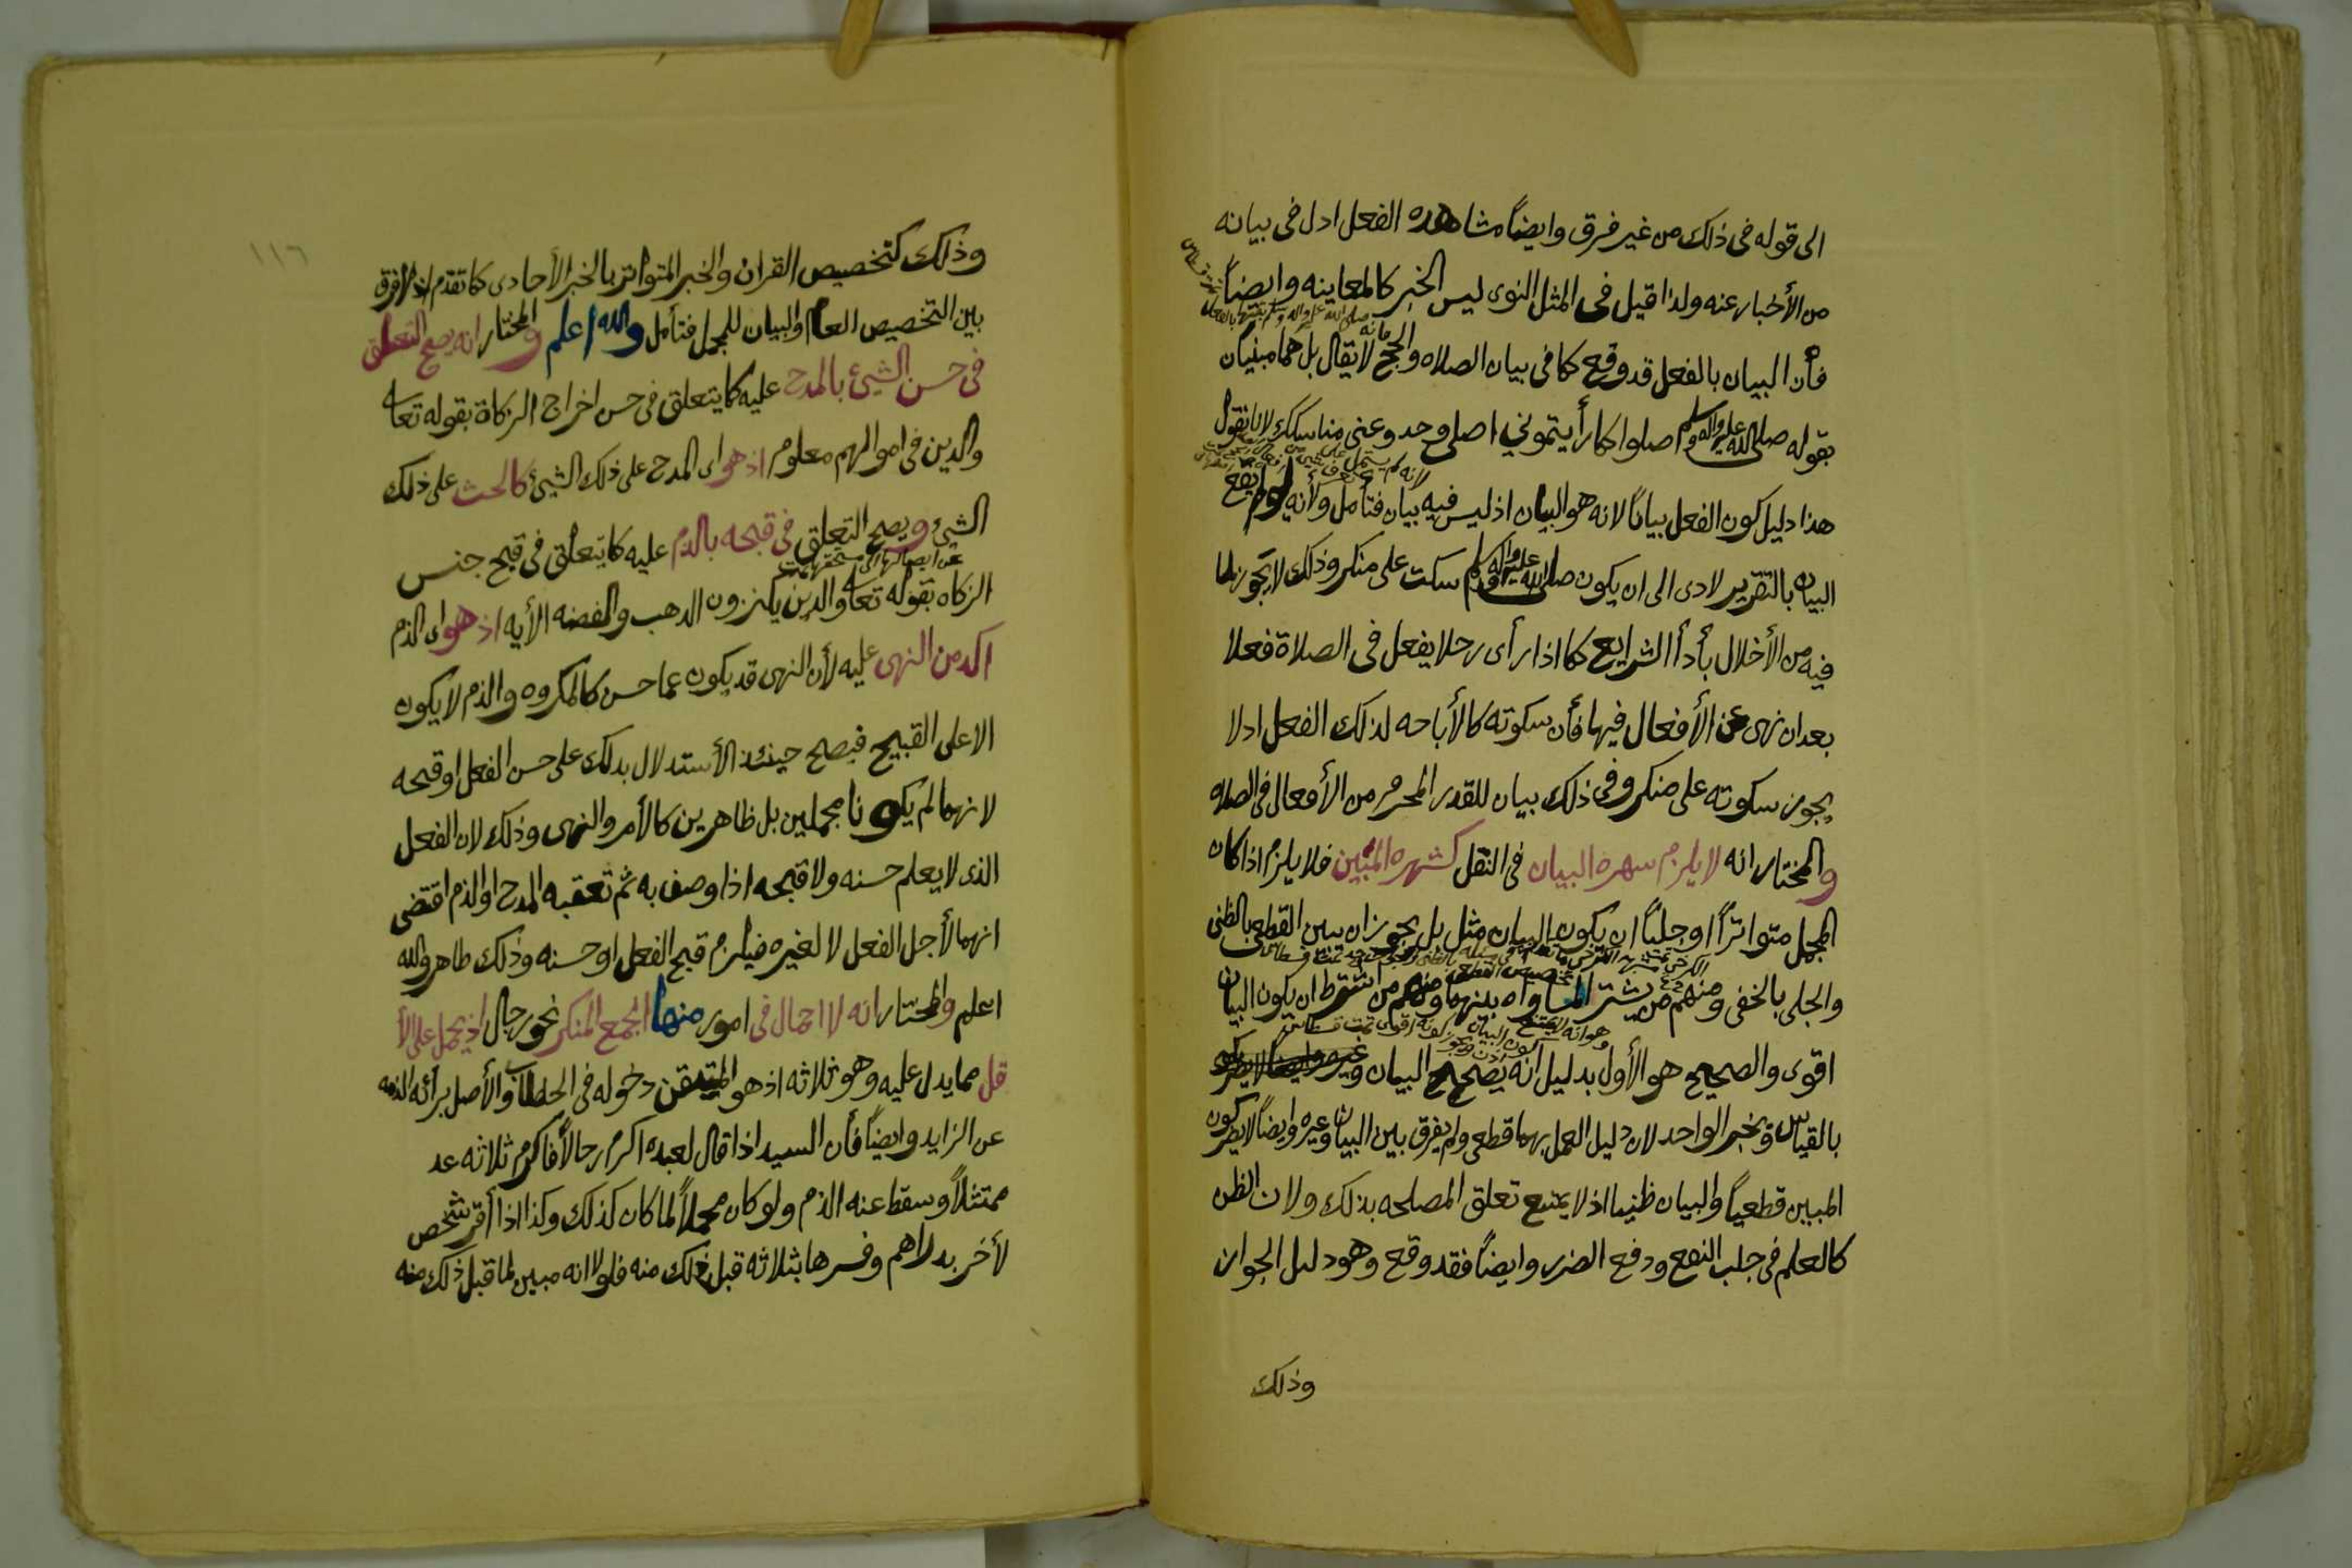 الى قوله فى ذلك من غير فرق وايضاً مشاهده الفعل ادل فى بيانه
من الأخبار عنه ولذا قيل فى المثل النوى ليس الخبر كالمعاينه وايضاً
فأن البيان بالفعل قد وقع كما فى بيان الصلاه والحج فانه لا يقال بل هما مبنيان
بقوله صلى الله عليه واله وسلم صلوا كما رأيتموني اصلى وخذوعنى مناسككم لانا نقول
هذا دليل كون الفعل بياناً لانه هو البيان اذ ليس فيه بيان فتأمل ولأنه لو لم يقع
البيان بالتقرير لادى الى ان يكون صلى الله عليه واله وسلم سكت على منكر وذلك لا يجوز لما
فيه من الأخلال بأدأ الشرايع كما اذا رأى رجلا يفعل فى الصلاة فعلا
بعد ان نهى عن الأفعال فيها فأن سكوته كالأباحه لذلك الفعل اذ لا
يجوز سكوته على منكر وفى ذلك بيان للقدر المحرم من الأفعال فى الصلاه
والمختار انه لا يلزم سهره البيان فى النقل كشهره المبين فلا يلزم اذا كان
المجمل متواتراً او جلياً ان يكون البيان مثل بل يجوز ان يبين القطعى بالظنى
والجلى بالخفى ومنهم من يشترط المساواه بينهما ومنهم من اشترط ان يكون البيان
اقوى والصحيح هو الأول بدليل انه يصح البيان وغيره
بالقياس وبخبر الواحد لان دليل العمل بهما قطعى ولم يفرق بين البيان وغيره وايضاً لا يضر كون
المبين قطعياً والبيان ظنيا اذ لا يمتنع تعلق المصلحه بذلك ولان الظن
كالعلم فى جلب النفع ودفع الضرر وايضاً فقد وقع وهو دليل الجواز
وذلك
١١٦
وذلك كتخصيص القران والخبر المتواتر بالخبر الأحادى كما تقدم اذ لا فرق
بين التخصيص العام والبيان للمجمل فتأمل والله اعلم والمختار انه يصح التعلق
فى حسن الشيئ بالمدح عليه كما يتعلق فى حسن اخراج الزكاة بقوله تعالى
والذين فى اموالهم معلوم اذ هو اى المدح على ذلك الشيئ كالحث على ذلك
الشيئ ويصح التعلق فى قبحه بالذم عليه كما يتعلق فى قبح جنس
الزكاه بقوله تعالى والذين يكنزون الذهب والفضه الأيه اذ هو اى الذم
اكد من النهى عليه لأن النهى قد يكون عما حسن كالمكروه والذم لا يكون
الا على القبيح فيصح حينئذ الأستدلال بذلك على حسن الفعل او قبحه
لانهما لم يكونا مجملين بل ظاهرين كالأمر والنهى وذلك لان الفعل
الذى لا يعلم حسنه ولا قبحه اذا وصف به ثم تعقبه المدح او الذم اقتضى
انهما لأجل الفعل لا لغيره فيلزم قبح الفعل او حسنه وذلك ظاهر والله
اعلم والمختار انه لا اجمال فى امور منها الجمع المنكر نحو رجال اذ يحمل على الأ
قل مما يدل عليه وهو ثلاثه اذ هو المتيقن دخوله فى الخطاب والأصل برائه الذمه
عن الزايد وايضاً فأن السيد اذا قال لعبده اكرم رجالاً فاكرم ثلاثه عد
ممتثلاً وسقط عنه الذم ولو كان مجملاً لما كان كذلك وكذا اذا أقر شخص
لأخر بدراهم وفسرها بثلاثه قبل ذلك منه فلولا انه مبين لما قبل ذلك منه